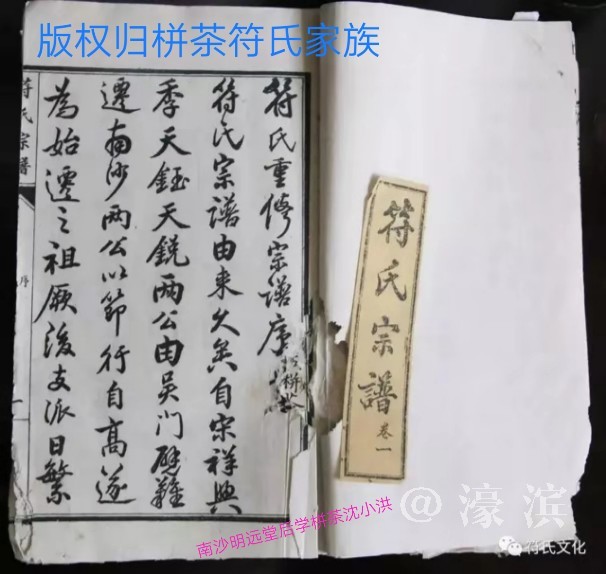 版权归栟茶符氏家族
符氏重修宗谱序
符氏宗譜由來久矣自宋祥興
季天鈺天銳兩公由吴門避難
遷南沙兩公以節行自高遂
為始遷之祖厥後支派日繁
符氏宗譜
序
符氏宗譜 卷一
南沙明远堂后学栟茶沈小洪
@濠滨
符氏文化